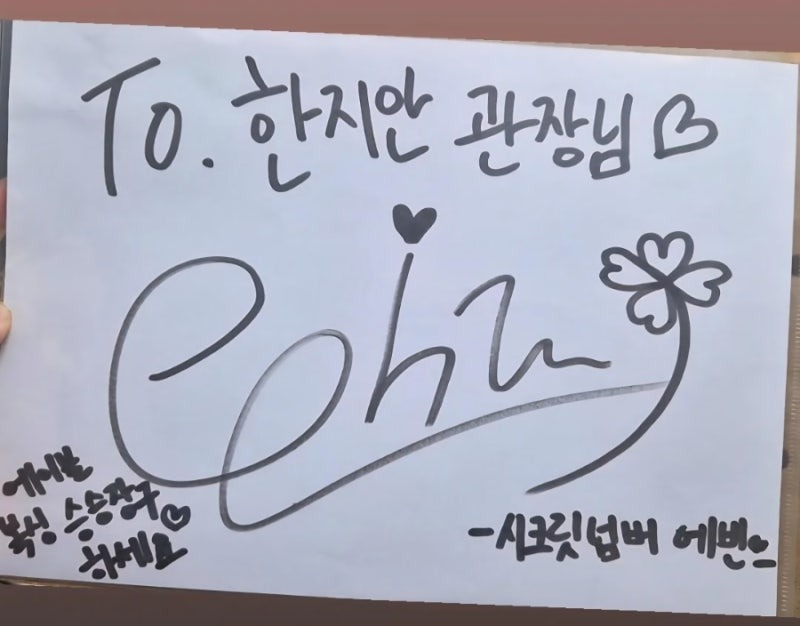 To. 한지안 관장님♡
에이블
복싱 승승장구♡
하세요
-시크릿넘버 에빈